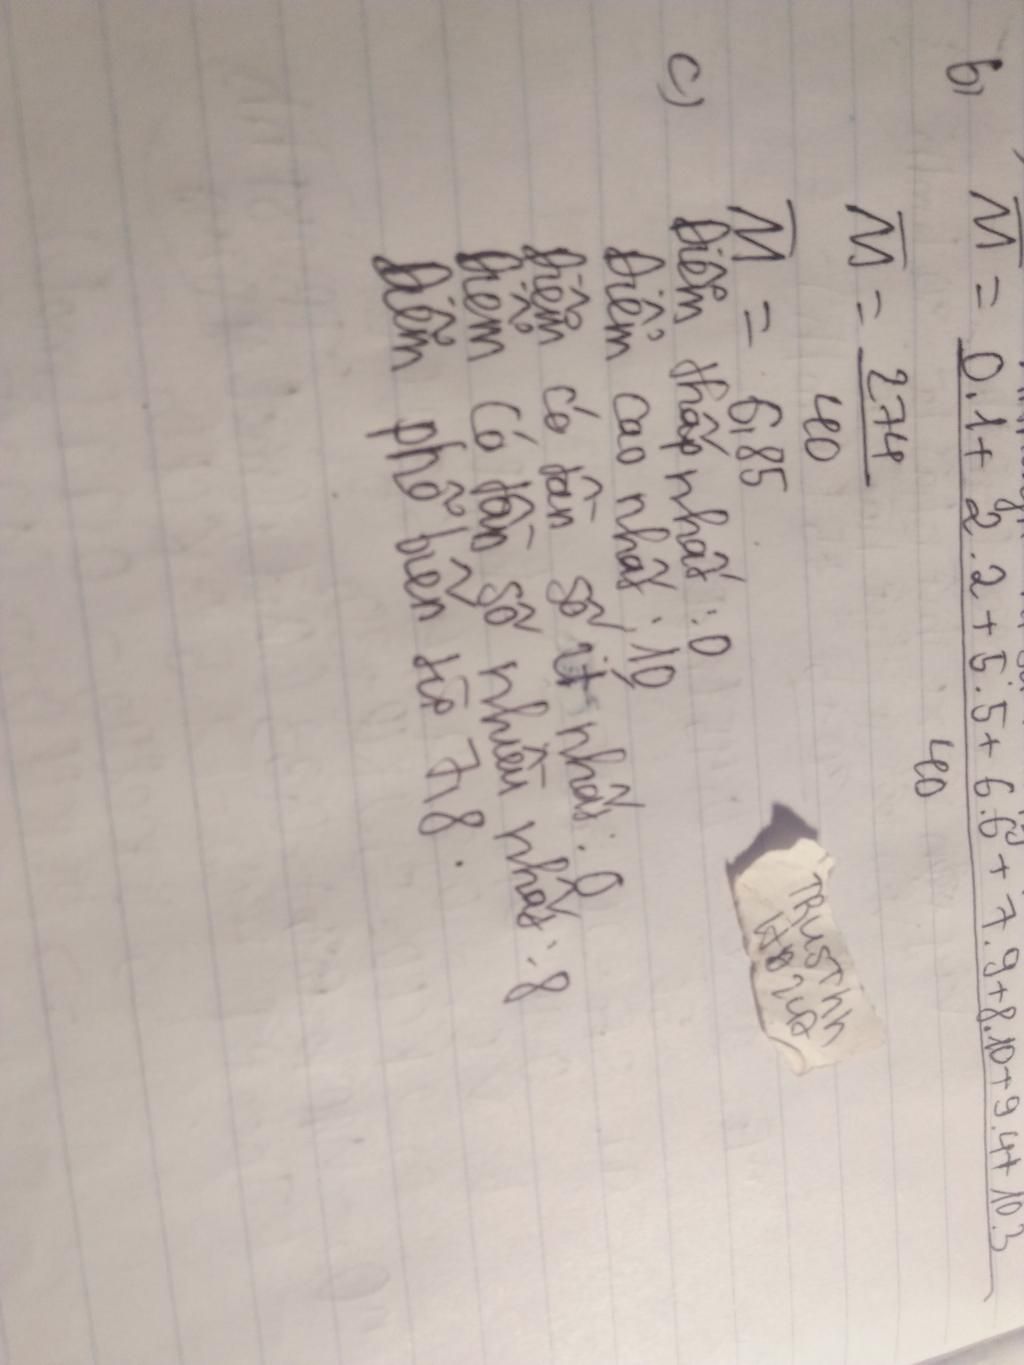 b) M̅ = 0.1+ 2.2+5.5+ 6.6+7.9+8.10+9.4+10.3
40
M̅ = 274
40
M̅ = 6,85
c) Điểm thấp nhất : 0
Điểm cao nhất : 10
Điểm có tần số ít nhất : 0
Điểm có tần số nhiều nhất : 8
Điểm phổ biến từ 7,8.
TRUSTHH